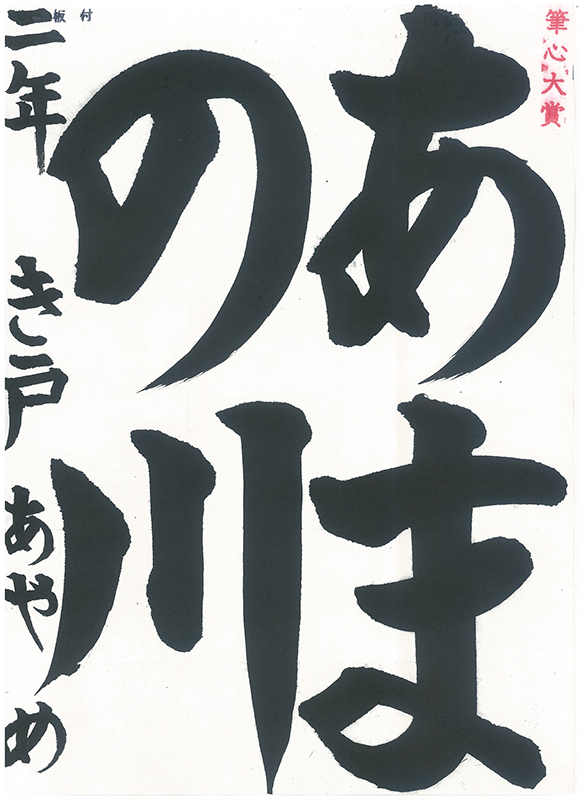 筆心大賞
あま
の川
二年 き戸 あやめ
板付